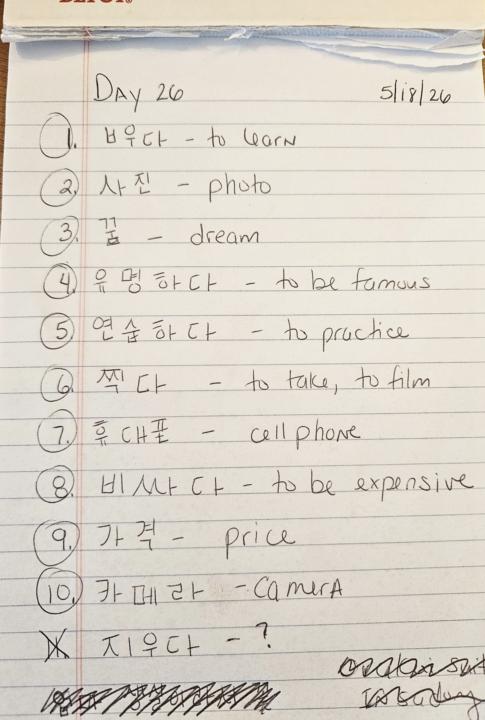 Day 26 5/18/26
1. ㅂ우다 - to learn
2. 사진 - photo
3. 꿈 - dream
4. 유명하다 - to be famous
5. 연습하다 - to practice
6. 찍다 - to take, to film
7. 휴대폰 - cell phone
8. 비싸다 - to be expensive
9. 가격 - price
10. 카메라 - camera
지우다 - ?